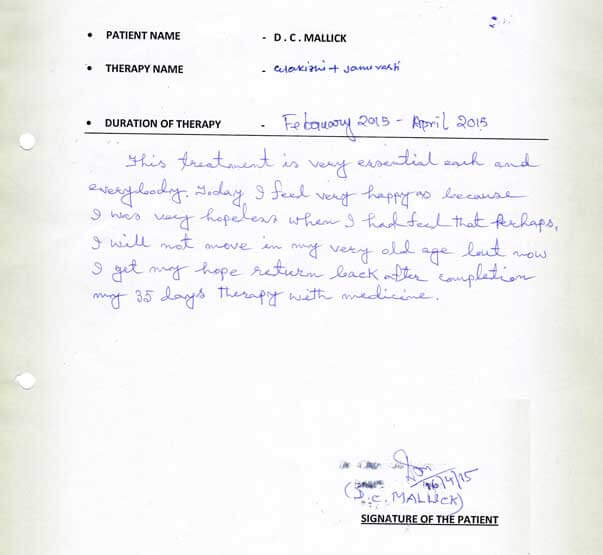 • PATIENT NAME - D. C. MALLICK
• THERAPY NAME - + Januvasti
• DURATION OF THERAPY - February 2015 - April 2015
This treatment is very essential each and
everybody. Today I feel very happy as because
I was very hopeless when I had feel that Perhaps,
I will not move in my very old age but now
I get my hope return back after completion
my 35 days therapy with medicine.
16/4/15
(D.C. MALLICK)
SIGNATURE OF THE PATIENT